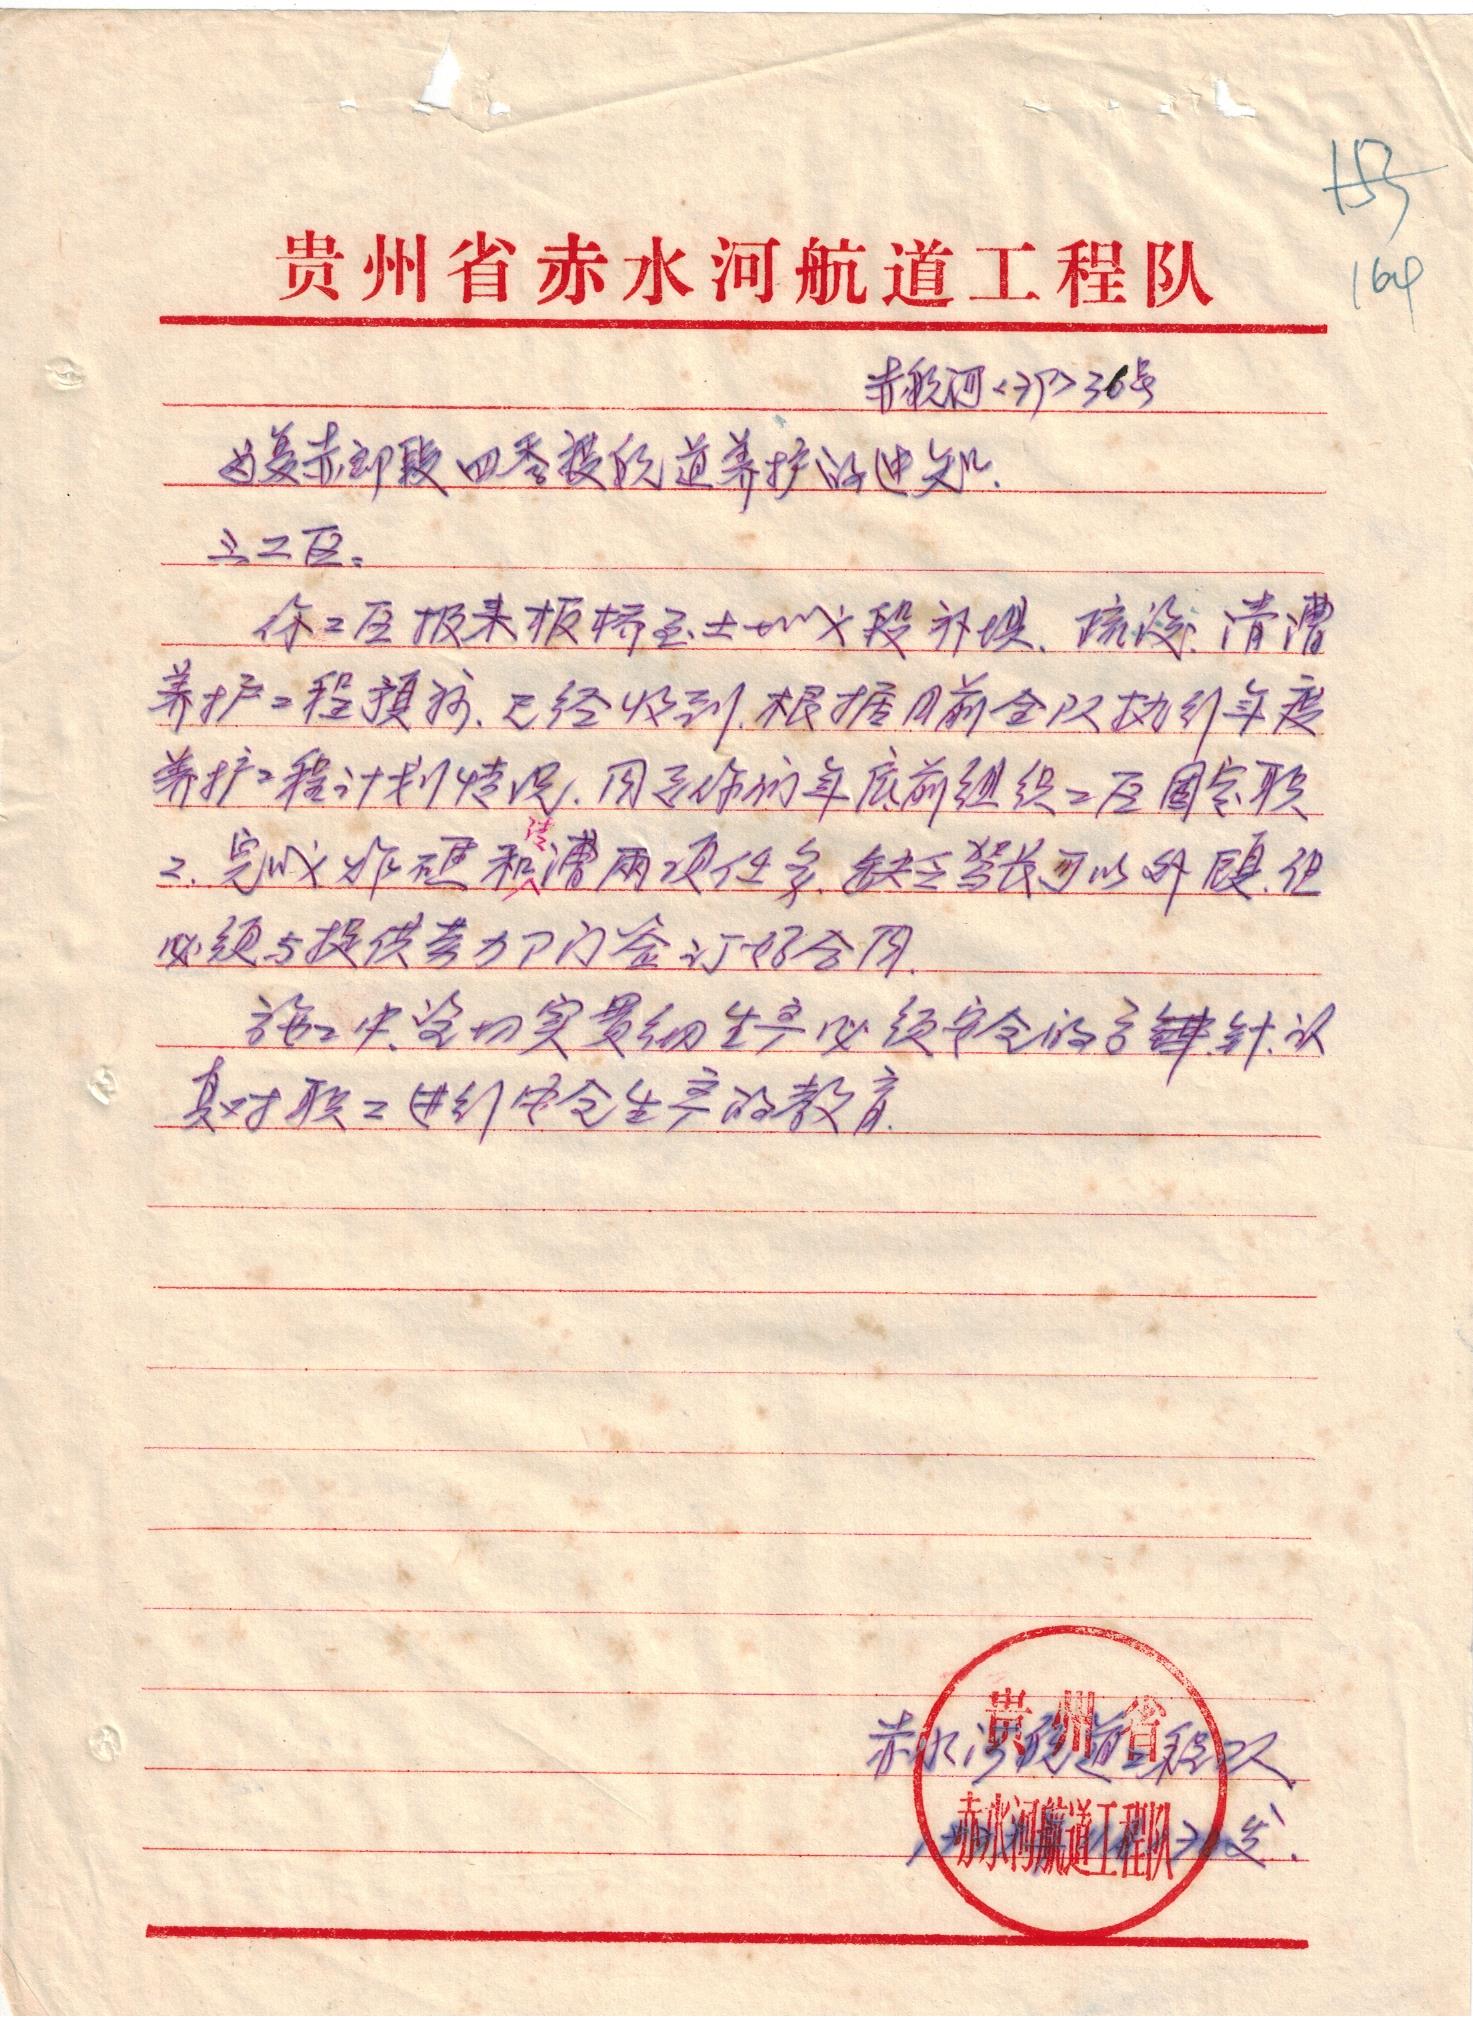 153
164
贵州省赤水河航道工程队
赤航河<79>36号
为复赤郎段四季投航道养护的通知.
三工区.
你工区报来板桥至土城段补坝、疏浚、清漕
养护工程预标、已经收到.根据目前全队执行年度
养护工程计划情况.同意你们年底前组织工区固定职
工.完成炸礁和清漕两项任务.缺乏驾长可以外顾.但
必须与提供劳力卩门签订好合同.
施工中.望切实贯彻生产必须安全的方针.认
真对职工进行安全生产的教育.
贵州省
赤水河航道工程队
赤水河航道工程队
发.